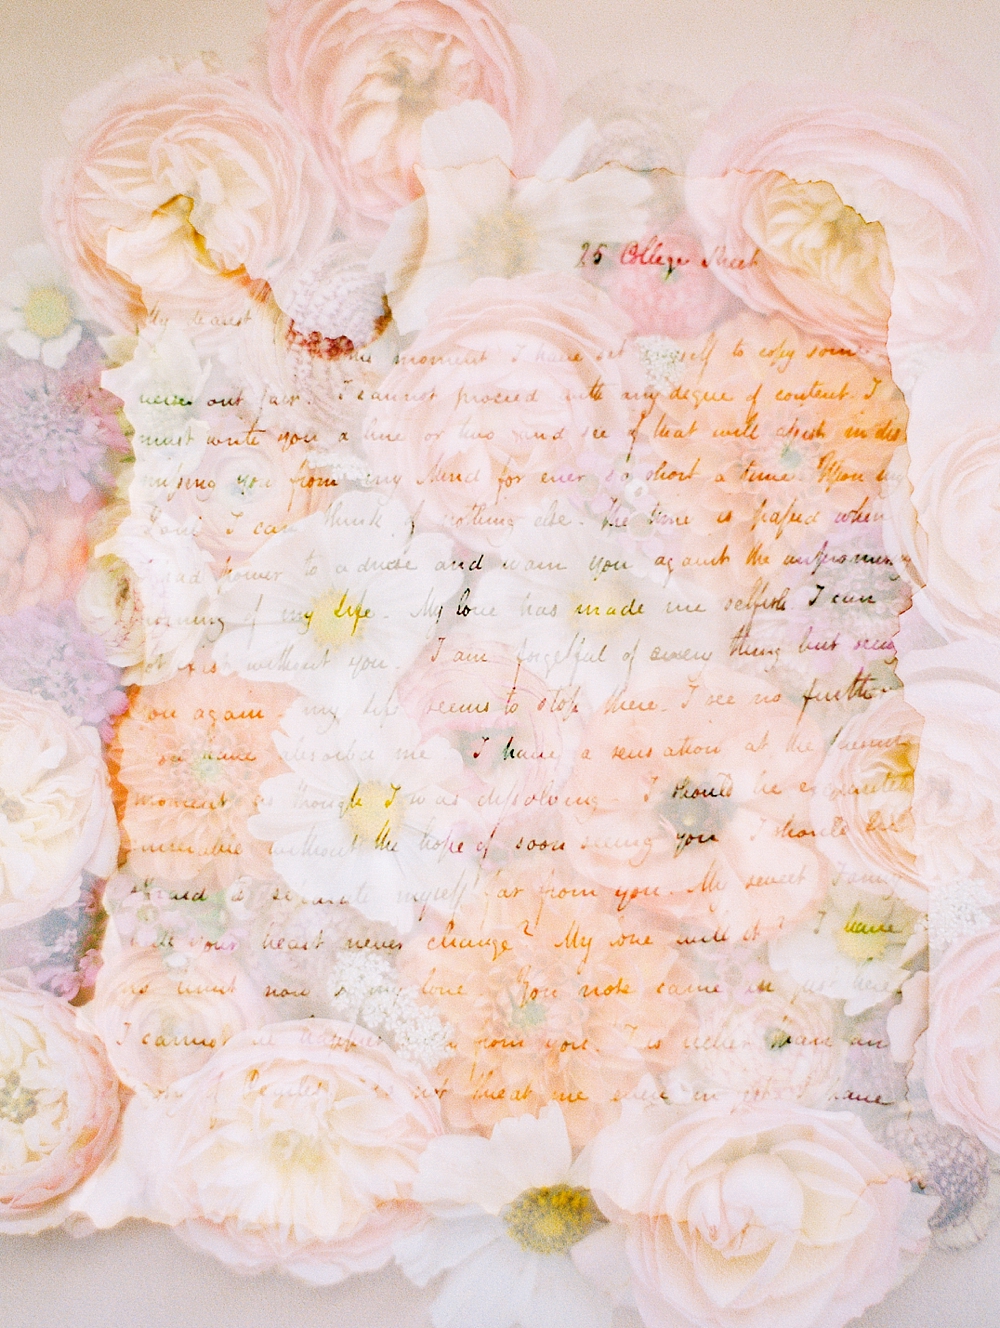 25 College Street
My dearest
the moment I have set myself to copy some
verses out fair. I cannot proceed with any degree of content. I
must write you a line or two and see if that will assist in dis
missing you from my Mind for ever so short a time. Upon my
Soul I can think of nothing else. The time is passed when
I had power to advise and warn you against the unpromising
morning of my Life. My love has made me selfish. I can
not exist without you. I am forgetful of every thing but seeing
you again. my Life seems to stop there. I see no further
You have absorb'd me I have a sensation at the present
moment as though I was dissolving. I should be exquisitely
miserable without the hope of soon seeing you I should be
afraid to separate myself far from you. My sweet Fanny
will your heart never change? My love will it? I have
no limit now to my love. You note came in just here
I cannot be happier from you. T is richer than an
of not threat me even in jest I have